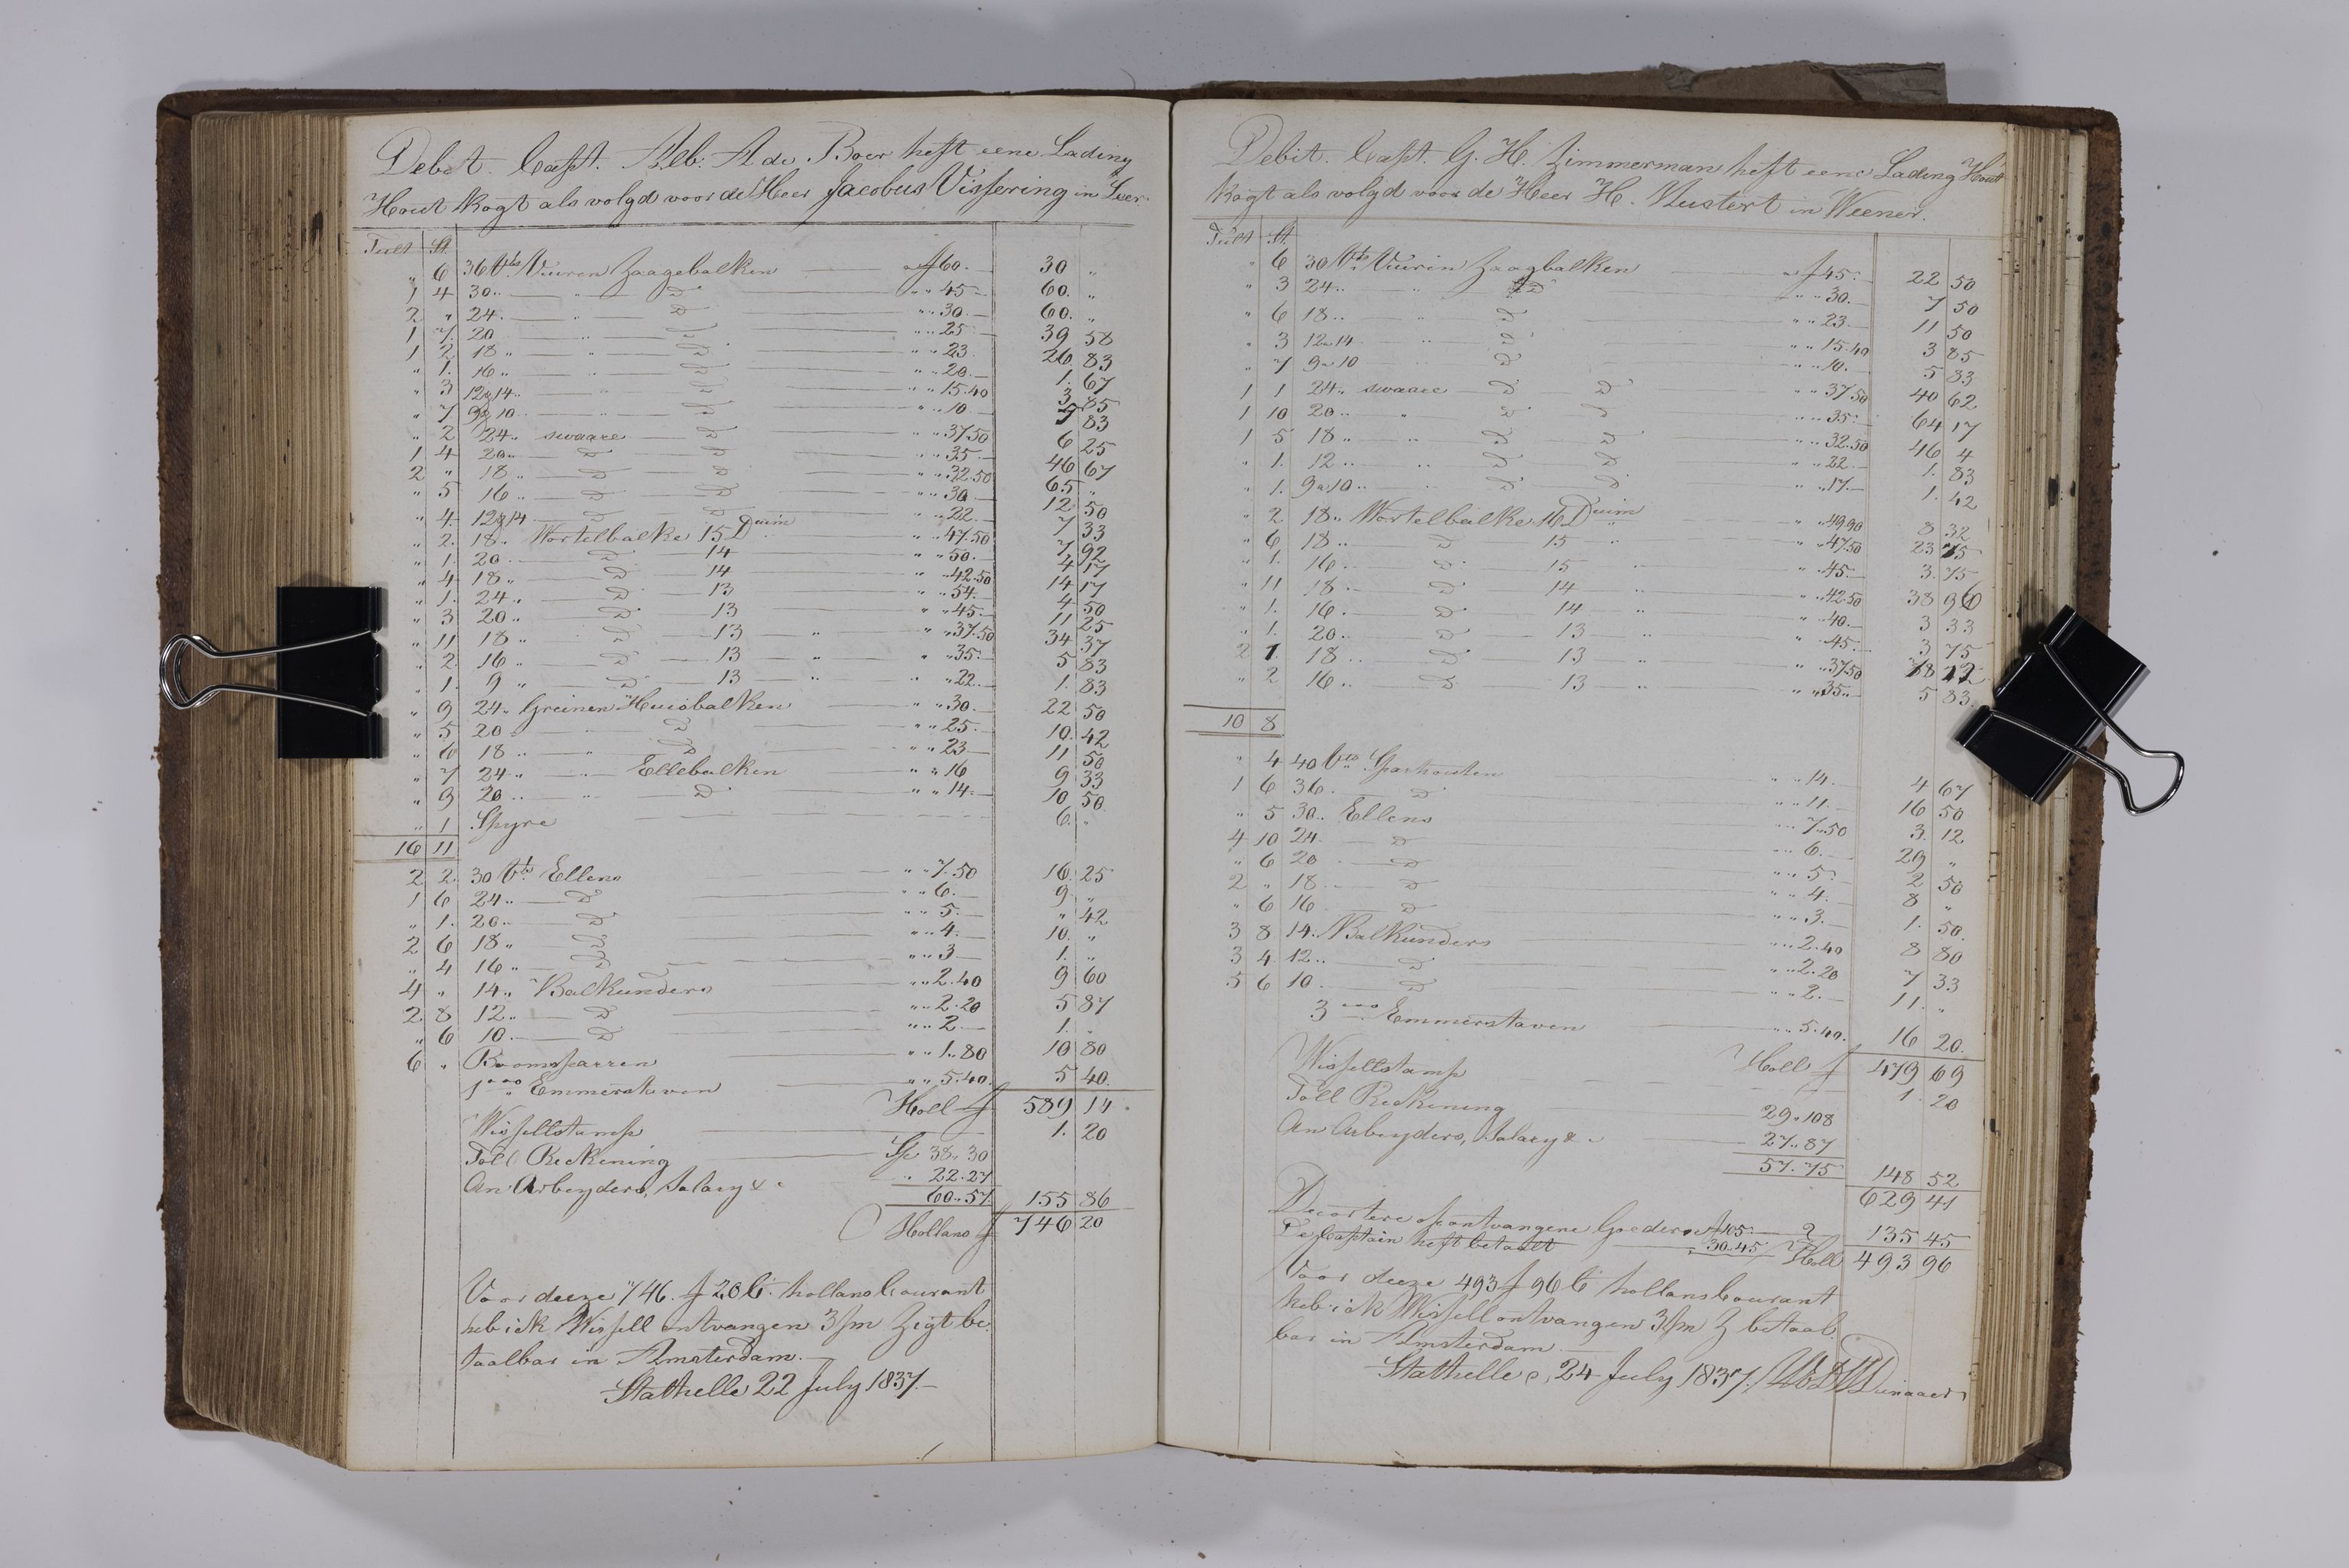 Debet. Capt. Alb: A de Boer heft eene Lading
Hout kogt als volgd voor de Heer Jacobus Vissering in Leer.
Tult St.
" 6 36 Vts Vuuren Zaagebalken a f 60. 30 "
1 4 30 " " D° " " 45 60. "
2 " 24 " " D° " " 30. 60. "
1 7. 20 " D° " " 25 39 58
1 2 18 " " D° " " 23 26 83
" 1. 16 " " D° " " 20. 1. 67
" 3 12 a 14 " " D° " " 15.40 3 85
" 7 9 a 10 " " D° " " 10 5 83
" 2 24 " swaare D° " " 37.50 6 25
1 4 20 " D° D° " " 35 46 67
2 " 18 " D° D° " " 32.50 65 "
" 5 16 " D° D° " " 30 12 50
" 4 12 a 14 D° D° " " 22. 7 33
" 2. 18 " Wortelbalke 15 Duim " " 47.50 7 92
" 1. 20 D° 14 " " 50. 4 17
" 4 18 " D° 14 " " 42.50 14 17
" 1. 24 " D° 13 " " 54. 4 50
" 3 20 " D° 13 " " 45. 11 25
" 11 18 " D° 13 " " " 37.50 34 37
" 2. 16 " D° 13 " " " 35. 5 83
" 1. 9 " D° 13 " " " 22. 1. 83
" 9 24 " Greinen Huisbalken " " 30. 22 50
" 5 20 " D° " " 25. 10. 42
" 6 18 " " D° " " 23 11 50
" 7 24 " " Ellebalken " " 16 9 33
" 9 20 " " D° " " 14. 10 50
" 1 Spyre 6. "
16 11
2 2. 30 Vts Ellens " " 7.50 16. 25
1 6 24 " D° " " 6. 9 "
" 1. 20 " D° " " 5. " 42
2 6 18 " D° " " 4. 10. "
" 4 16 " D° " " 3 1. "
4 " 14 " Balkunders " " 2.40 9 60
2 8 12 " D° " " 2.20 5 87
" 6 10 D° " " 2 1. "
6 " Boomsparren " " 1.80 10 80
1000 Emmerstaven " " 5.40. 5 40.
Holl f 589 14.
Wissellstamp 1. 20
Toll Reckening Sp 38.. 30
An Arbeyders, Salary & " 22.27
60.. 57. 155 86
Hollans f 746 20
Voor deeze 746. f 20 C. hollans Courant
heb ick Wissell ontvangen 3/m Zigt be-
taalbar in Amsterdam.
Stathelle 22 July 1837.
Debit. Capt. G. H. Zimmerman heft eene Lading Hout
kogt als volgd voor de Heer H. Kustert in Weener.
Tult St.
" 6 30 Vts Vuurin Zaagbalken a f 45. 22 50
" 3 24 " " D° " " 30. 7 50
" 6 18 " " D° " " 23. 11 50
" 3 12 a 14 " D° " " 15.40 3 85
" 7 9 a 10 D° " " 10. 5 83
1 1 24 " swaare D° D° " " 37.50 40 62
1 10 20 " " D° D° " " 35. 64 17
1 5 18 " " D° D° " " 32.50 46 4
" 1. 12 " " D° D° " " 22. 1. 83
" 1. 9 a 10 " " D° D° " " 17. 1. 42
" 2 18 " Wortelbalke 16 Duim " " 49.90 8 32
" 6 18 " D° 15 " " " 47.50 23 75
" 1. 16 " D° 15 " " " 45. 3. 75
" 11 18 " D° 14 " " " 42.50 38 96
" 1. 16. D° 14 " " " 40. 3 33
" 1. 20. D° 13 " " " 45. 3 75
2 1. 18 " D° 13 " " " 37.50 78 12
" 2 16 " D° 13 " " " 35. 5 83.
10 8
" 4 40 Vts Sparhouten " " 14. 4 67
1 6 36. D° " " 11. 16 50
" 5 30 " Ellens " " 7.50 3. 12
4 10 24. D° " " 6. 29 "
" 6 20 D° " " 5. 2 50
2 " 18 D° " " 4. 8 "
" 6 16 D° " " 3. 1. 50.
3 8 14 " Balkunders " " 2.40 8 80
3 4. 12 " D° " " 2.20 7 33
5 6 10. D° " " 2. 11. "
3000 Emmerstaven " " 5.40. 16 20.
Holl f 479 69
Wissellstamp 1. 20
Toll Reckening 29. 108
An Arbeyders, Salary & 27.. 87
57. 75 148 52
629 41
Decortere op ontvangene Goederen f 105. 2 135 45
De Captain heft betaalt " 30.45 Holl 493 96
Voor deeze 493 f 96 C hollans Courant
heb ick Wissell ontvangen 3/m Z betaal-
bar in Amsterdam
Stathelle, 24 July 1837.